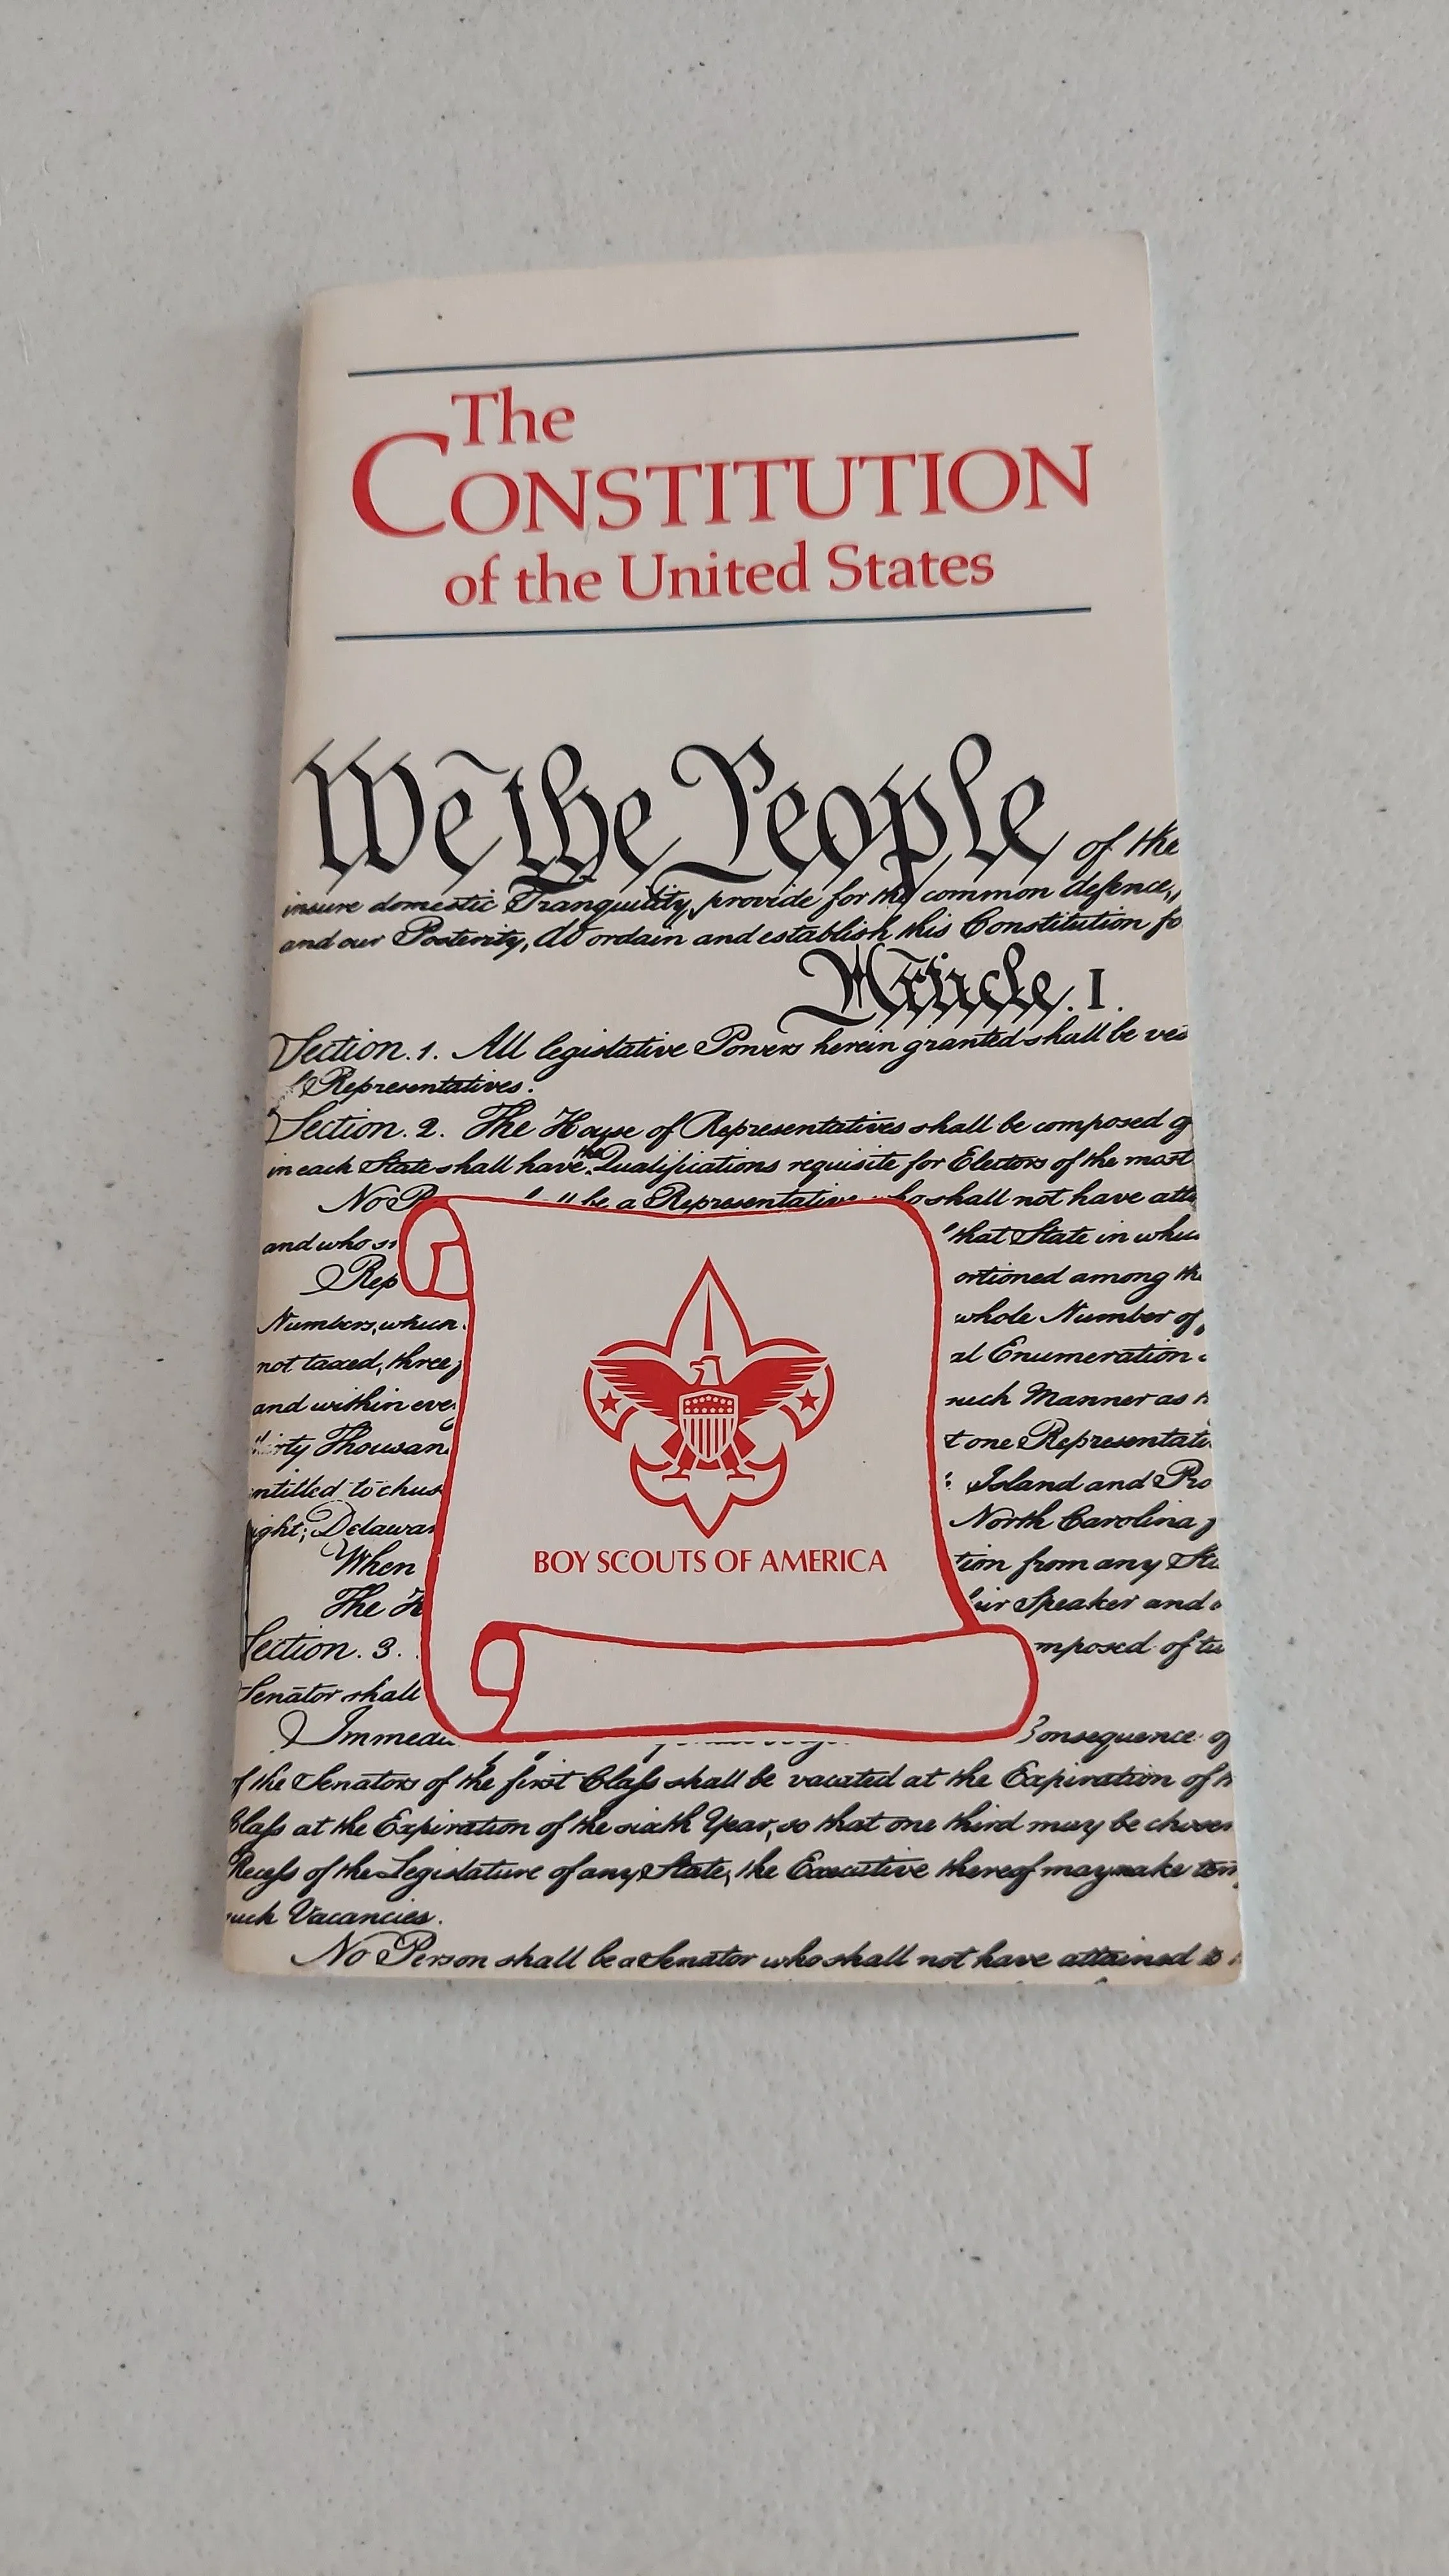 The
CONSTITUTION
of the United States
We the People of the
insure domestic Tranquility, provide for the common defence,
and our Posterity, do ordain and establish this Constitution fo
Article. I.
Section. 1. All legislative Powers herein granted shall be ves
Representatives.
Section. 2. The House of Representatives shall be composed o
in each State shall have the Qualifications requisite for Electors of the most
No P be a Representative who shall not have atta
and who s that State in whic
Rep ortioned among the
Numbers, which whole Number of
not taxed, three al Enumeration
and within eve such Manner as
thirty Thousan one Representati
entitled to chus Island and Pro
ight; Delawar North Carolina
When tion from any Sta
The H eir Speaker and
Section. 3. mposed of tw
Senator shall
Immedi Consequence of
of the Senators of the first Class shall be vacated at the Expiration of
Class at the Expiration of the sixth Year, so that one third may be chosen
Recess of the Legislature of any State, the Executive thereof may make tem
such Vacancies.
No Person shall be a Senator who shall not have attained to
BOY SCOUTS OF AMERICA